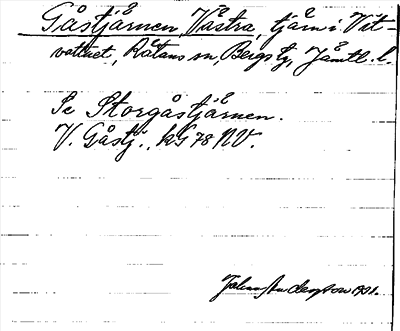 Gåstjärnen, Västra, tjärn i Vit-
vattnet, Råtans sn, Bergs tg, Jämtl. l.
Se Storgåstjärnen.
V. Gåstj., kG 78 NV.
Johans Anderson 1931.